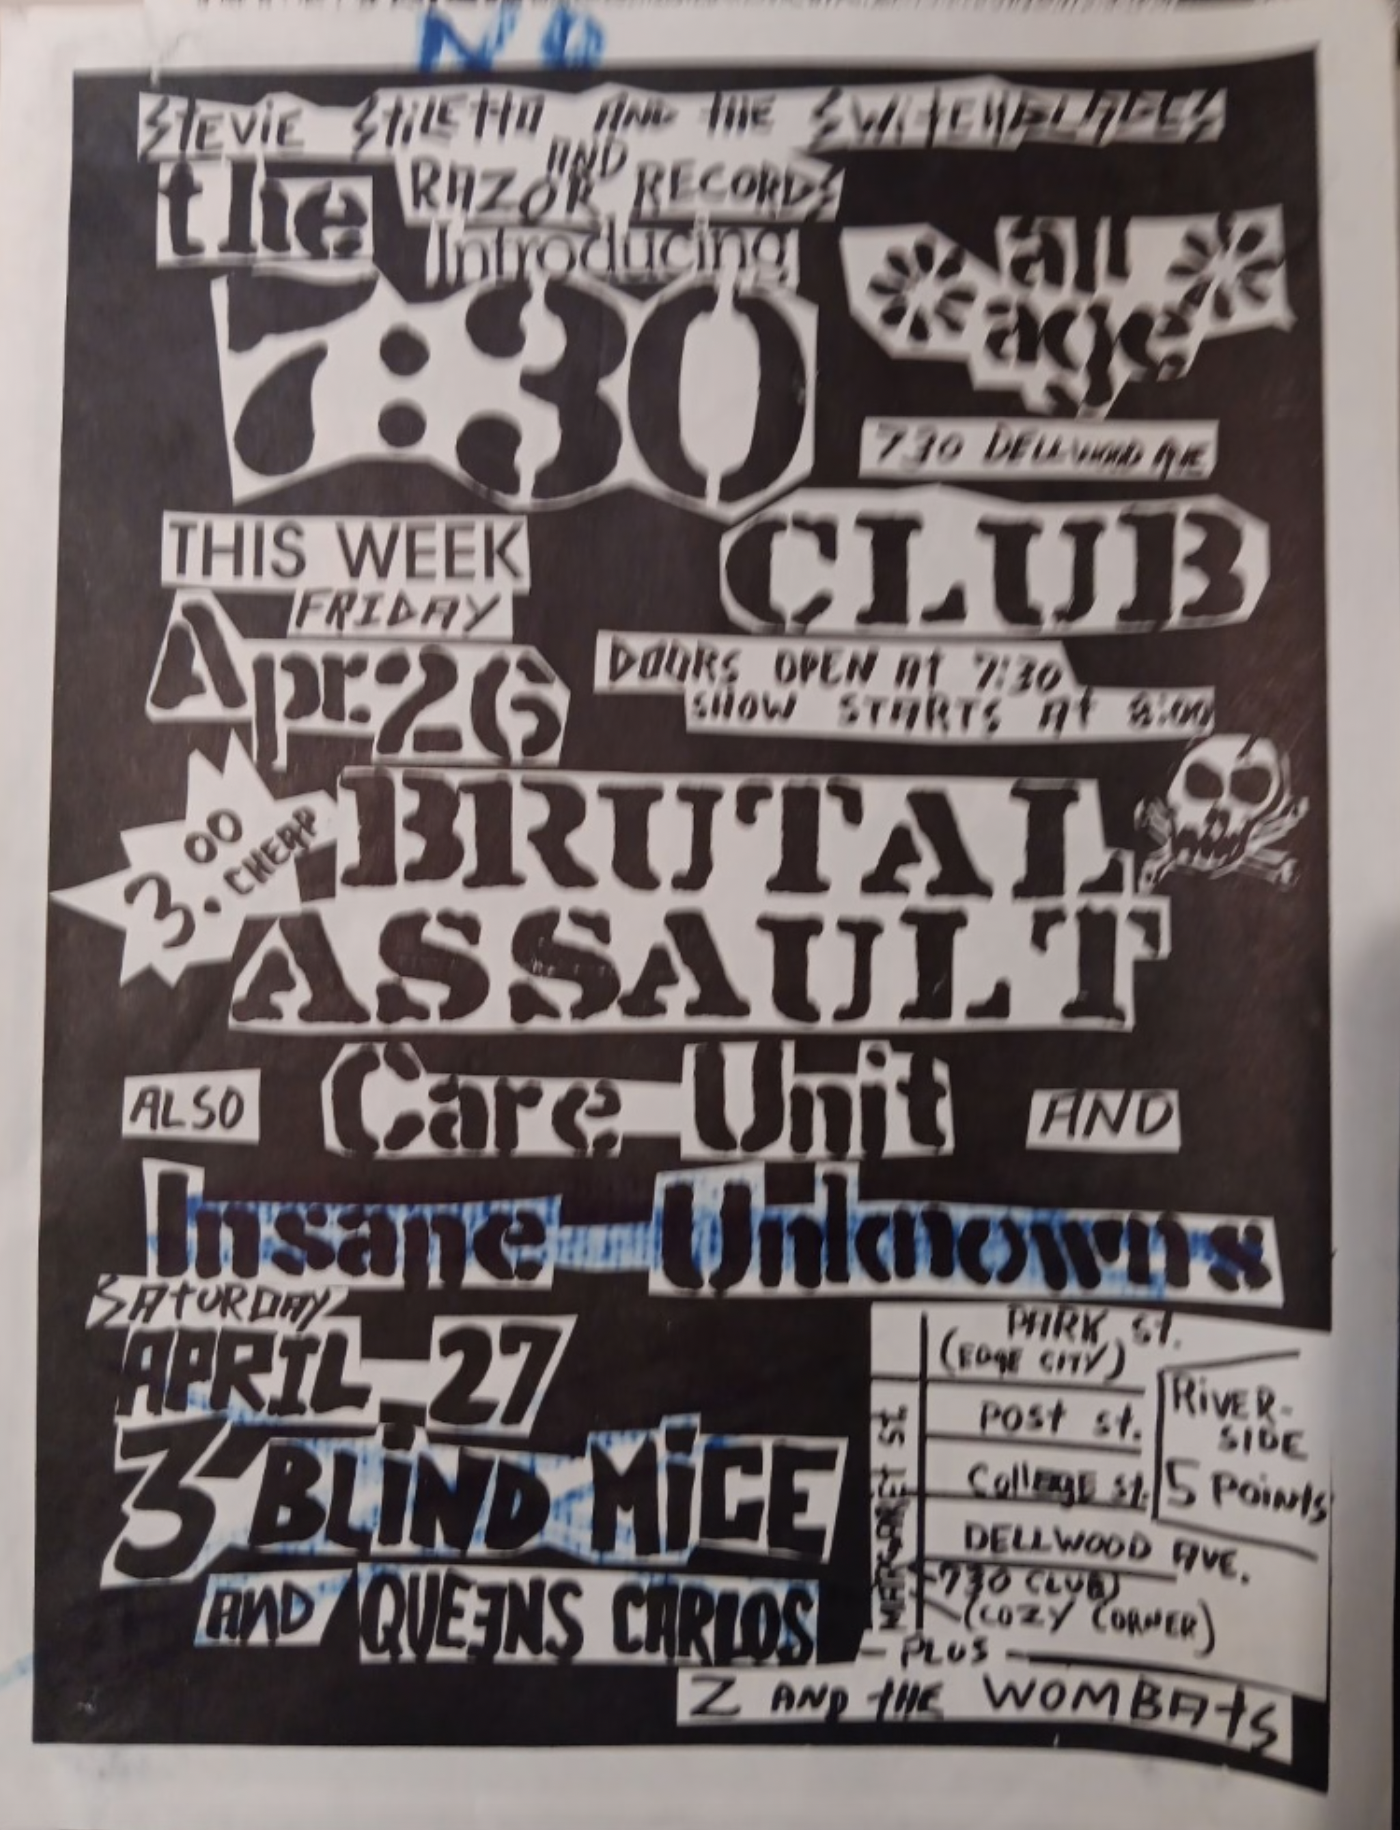 NO
STEVIE STILETTO AND THE SWITCHBLADES
AND
RAZOR RECORDS
Introducing
the
7:30
CLUB
all
age
730 DELLWOOD AVE
THIS WEEK
FRIDAY
Apr. 26
DOORS OPEN At 7:30
SHOW STARTS At 8:00
3.00 CHEAP
BRUTAL
ASSAULT
ALSO Care Unit AND
Insane Unknowns
SATURDAY
APRIL 27
3 BLiND MiCE
AND QUEENS CARLOS
PARK St.
(EDGE CITY)
POSt St.
COllEgE St.
RiVER-
SIDE
5 POiNtS
MARGARET St.
DELLWOOD AVE.
730 CLUB
(COZY CORNER)
- PLUS -
Z AND tHE WOMBAtS